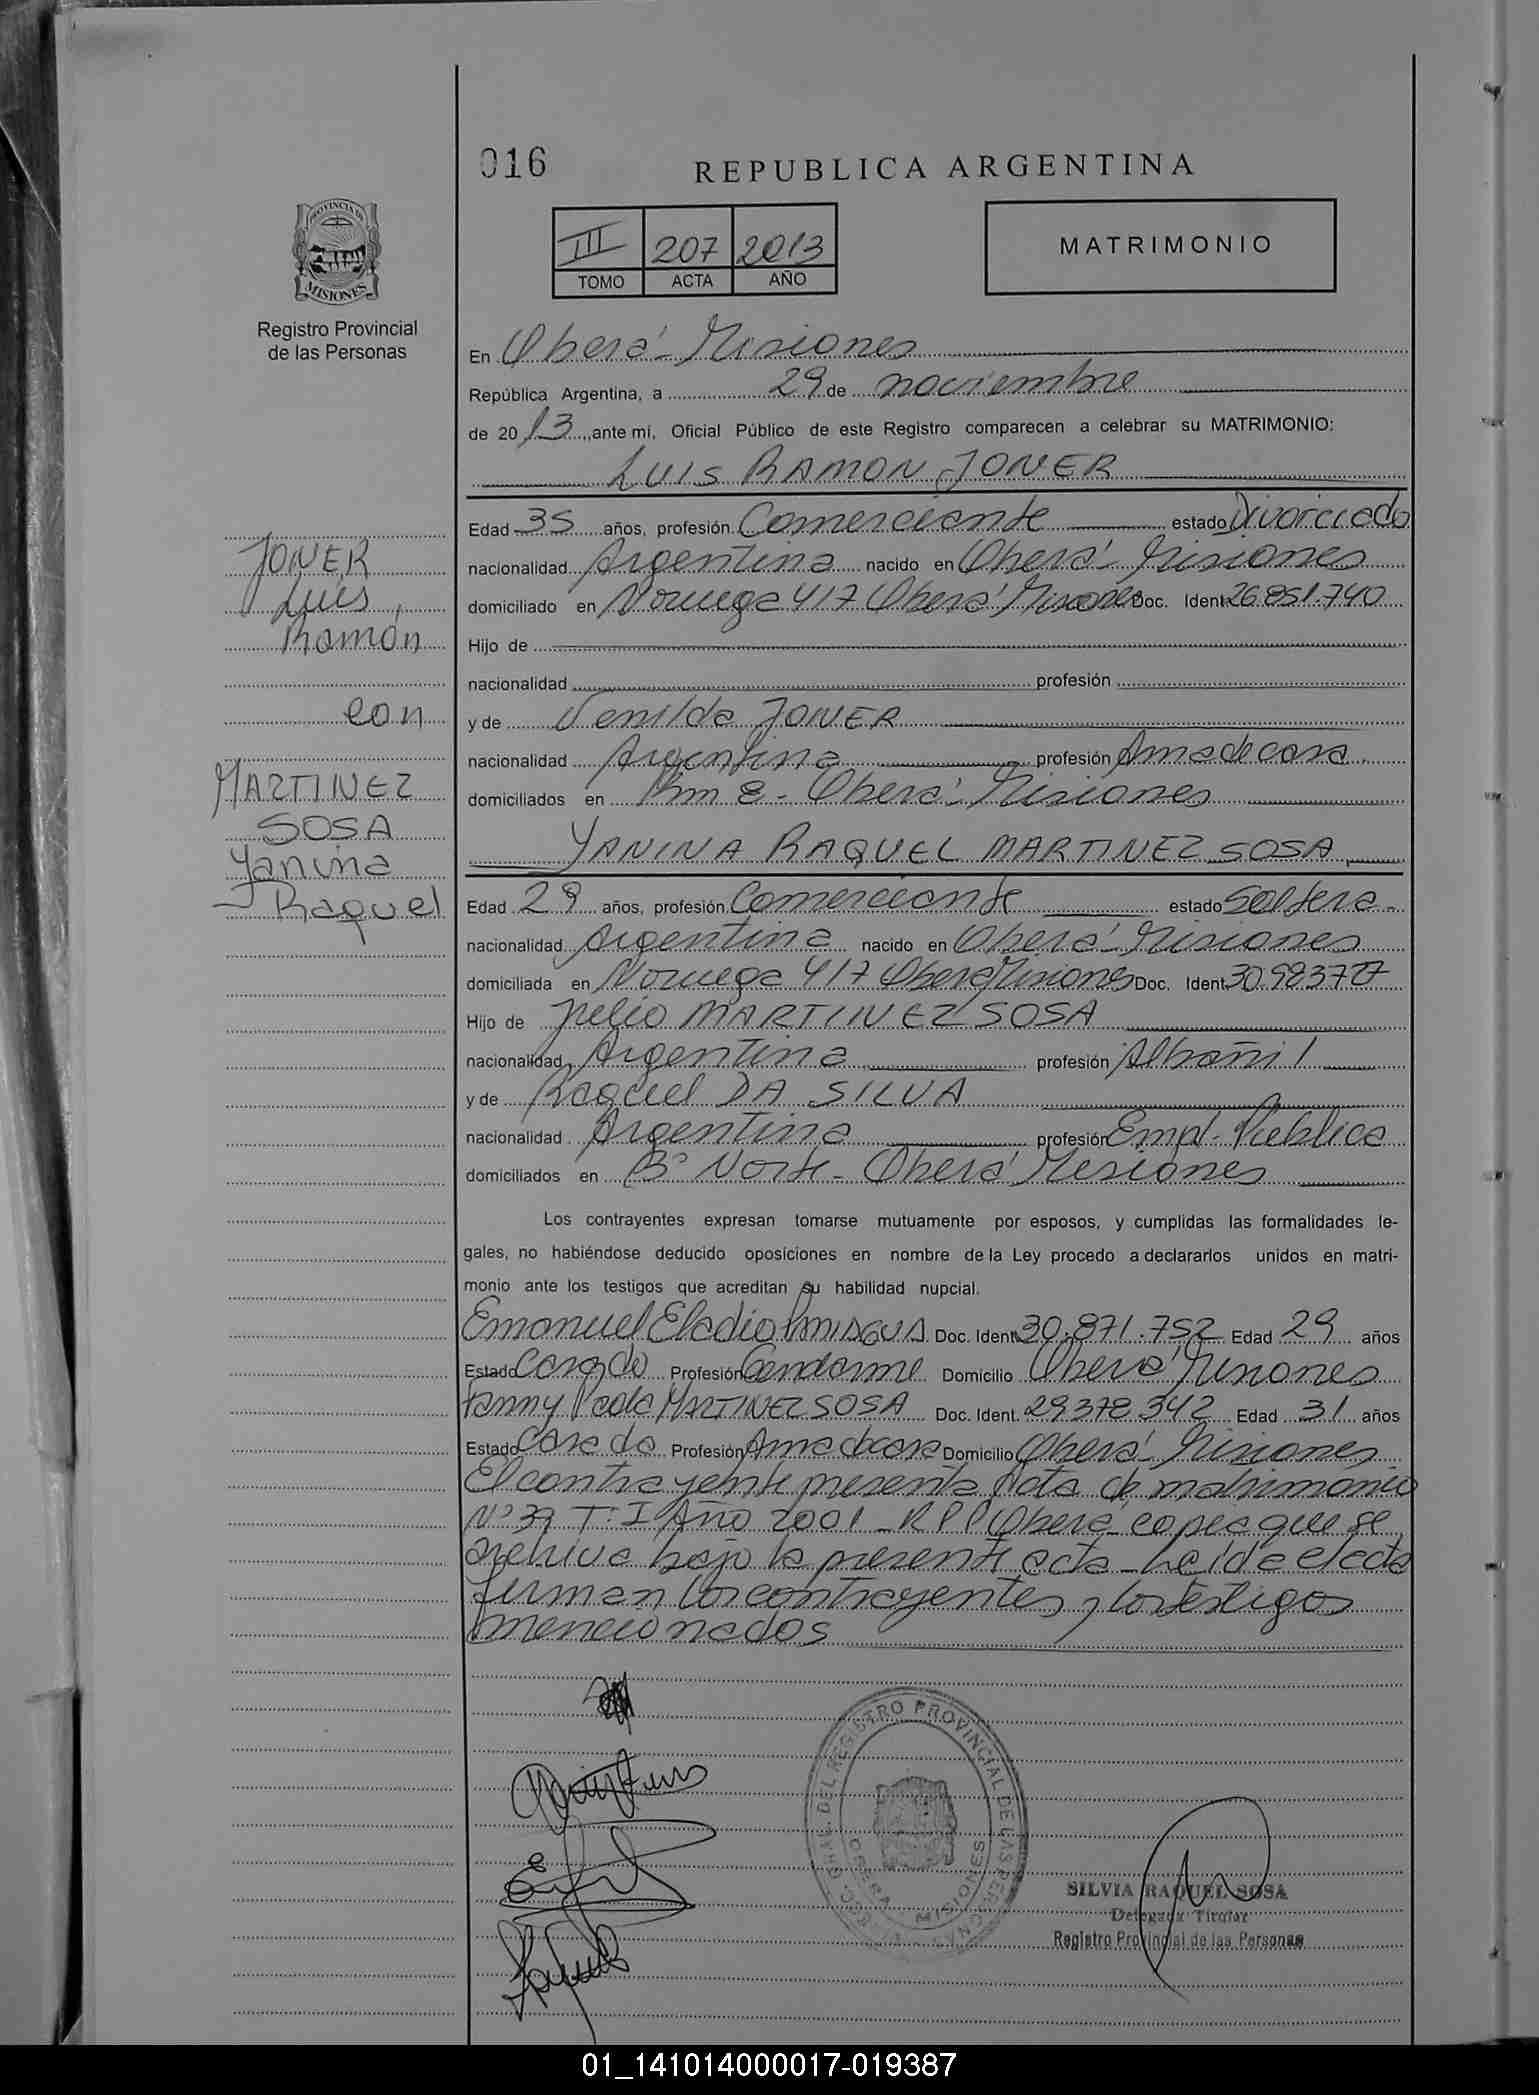 016
REPUBLICA ARGENTINA
III 207 2013
TOMO ACTA AÑO
MATRIMONIO
PROVINCIA DE
MISIONES
Registro Provincial
de las Personas
En Oberá - Misiones
República Argentina, a 29 de noviembre
de 2013, ante mi, Oficial Público de este Registro comparecen a celebrar su MATRIMONIO:
LUIS RAMON JONER
Edad 35 años, profesión Comerciante estado Divorciado
nacionalidad Argentina nacido en Oberá - Misiones
domiciliado en Noruega 417 Oberá Misiones Doc. Ident. 26.851.740
Hijo de
nacionalidad profesión
y de Venilda JONER
nacionalidad Argentina profesión Ama de casa.
domiciliados en Km 8 - Oberá - Misiones
YANINA RAQUEL MARTINEZ SOSA
Edad 29 años, profesión Comerciante estado Soltera -
nacionalidad Argentina nacido en Oberá - Misiones
domiciliada en Noruega 417 Oberá Misiones Doc. Ident. 30.983.727
Hijo de Julio MARTINEZ SOSA
nacionalidad Argentina profesión Albañil
y de Raquel DA SILVA
nacionalidad Argentina profesión Empl. Publica
domiciliados en Bº Norte - Oberá Misiones
JONER
Luis
Ramón
con
MARTINEZ
SOSA
Yanina
Raquel
Los contrayentes expresan tomarse mutuamente por esposos, y cumplidas las formalidades le-
gales, no habiéndose deducido oposiciones en nombre de la Ley procedo a declararlos unidos en matri-
monio ante los testigos que acreditan su habilidad nupcial.
Emanuel Eladio Doc. Ident. 30.871.752 Edad 29 años
Estado Casado Profesión Gendarme Domicilio Oberá Misiones
Fanny Paola MARTINEZ SOSA Doc. Ident. 29378.342 Edad 31 años
Estado Casada Profesión Ama de casa Domicilio Oberá - Misiones
El contrayente presenta Acta de matrimonio
Nº 39 T: I Año 2001 - RPP Oberá copia que se
archiva bajo la presente acta - Leída el acta
firman los contrayentes y los testigos
mencionados
DEL REGISTRO PROVINCIAL DE LAS PERSONAS
OBERA MISIONES
SILVIA RAQUEL SOSA
Delegada Titular
Registro Provincial de las Personas
01_141014000017-019387